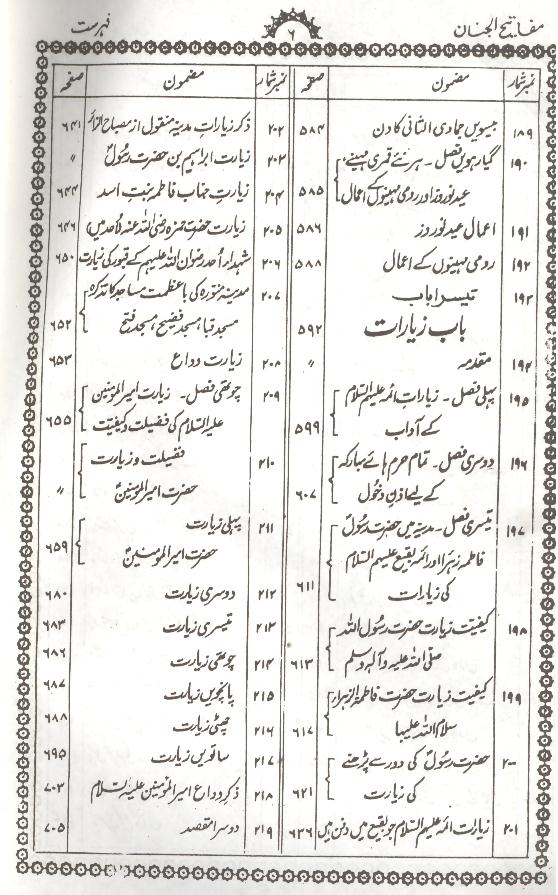 مفاتیح الجنان
۶
فہرست
نمبر شمار مضمون صفحہ
۱۸۹ بیسویں جمادی الثانی کا دن ۵۸۴
۱۹۰ گیارہویں فصل ۔ ہر نئے قمری مہینے،
عید نوروز اور رومی مہینوں کے اعمال ۵۸۵
۱۹۱ اعمال عید نوروز ۵۸۶
۱۹۲ رومی مہینوں کے اعمال ۵۸۸
۱۹۳ تیسرا باب
باب زیارات ۵۹۲
۱۹۴ مقدمہ 〃
۱۹۵ پہلی فصل ۔ زیارات ائمہ علیہم السلام
کے آداب ۵۹۹
۱۹۶ دوسری فصل ۔ تمام حرم ہائے مبارکہ
کے لیے اذن دخول ۶۰۷
۱۹۷ تیسری فصل ۔ مدینہ میں حضرت رسولؐ
فاطمہ زہرا اور ائمہ بقیع علیہم السلام
کی زیارات ۶۱۱
۱۹۸ کیفیت زیارت حضرت رسول اللہ
صلی اللہ علیہ وآلہ وسلم ۶۱۳
۱۹۹ کیفیت زیارت حضرت فاطمۃ الزہراء
سلام اللہ علیہا ۶۱۷
۲۰۰ حضرت رسولؐ کی دور سے پڑھنے
کی زیارت ۶۲۱
۲۰۱ زیارت ائمہ علیہم السلام جو بقیع میں دفن ہیں ۶۳۶
نمبر شمار مضمون صفحہ
۲۰۲ ذکر زیارات مدینہ منقول از مصباح الزائر ۶۴۱
۲۰۳ زیارت ابراہیم بن حضرت رسولؐ 〃
۲۰۴ زیارت جناب فاطمہ بنت اسد ۶۴۴
۲۰۵ زیارت حضرت حمزہ رضی اللہ عنہ (احد میں) ۶۴۶
۲۰۶ شہداء احد رضوان اللہ علیہم کے قبور کی زیارت ۶۵۰
۲۰۷ مدینہ منورہ کی باعظمت مساجد کا تذکرہ
مسجد قبا، مسجد فضیخ، مسجد فتح ۶۵۲
۲۰۸ زیارت وداع ۶۵۳
۲۰۹ چوتھی فصل ۔ زیارت امیرالمومنین
علیہ السلام کی فضیلت و کیفیت ۶۵۵
۲۱۰ فضیلت و زیارت
حضرت امیرالمومنینؑ 〃
۲۱۱ پہلی زیارت
حضرت امیرالمومنینؑ ۶۵۹
۲۱۲ دوسری زیارت ۶۸۰
۲۱۳ تیسری زیارت ۶۸۳
۲۱۴ چوتھی زیارت ۶۸۶
۲۱۵ پانچویں زیارت ۶۸۷
۲۱۶ چھٹی زیارت ۶۸۸
۲۱۷ ساتویں زیارت ۶۹۵
۲۱۸ ذکر وداع امیرالمومنین علیہ السلام ۷۰۳
۲۱۹ دوسرا مقصد ۷۰۵